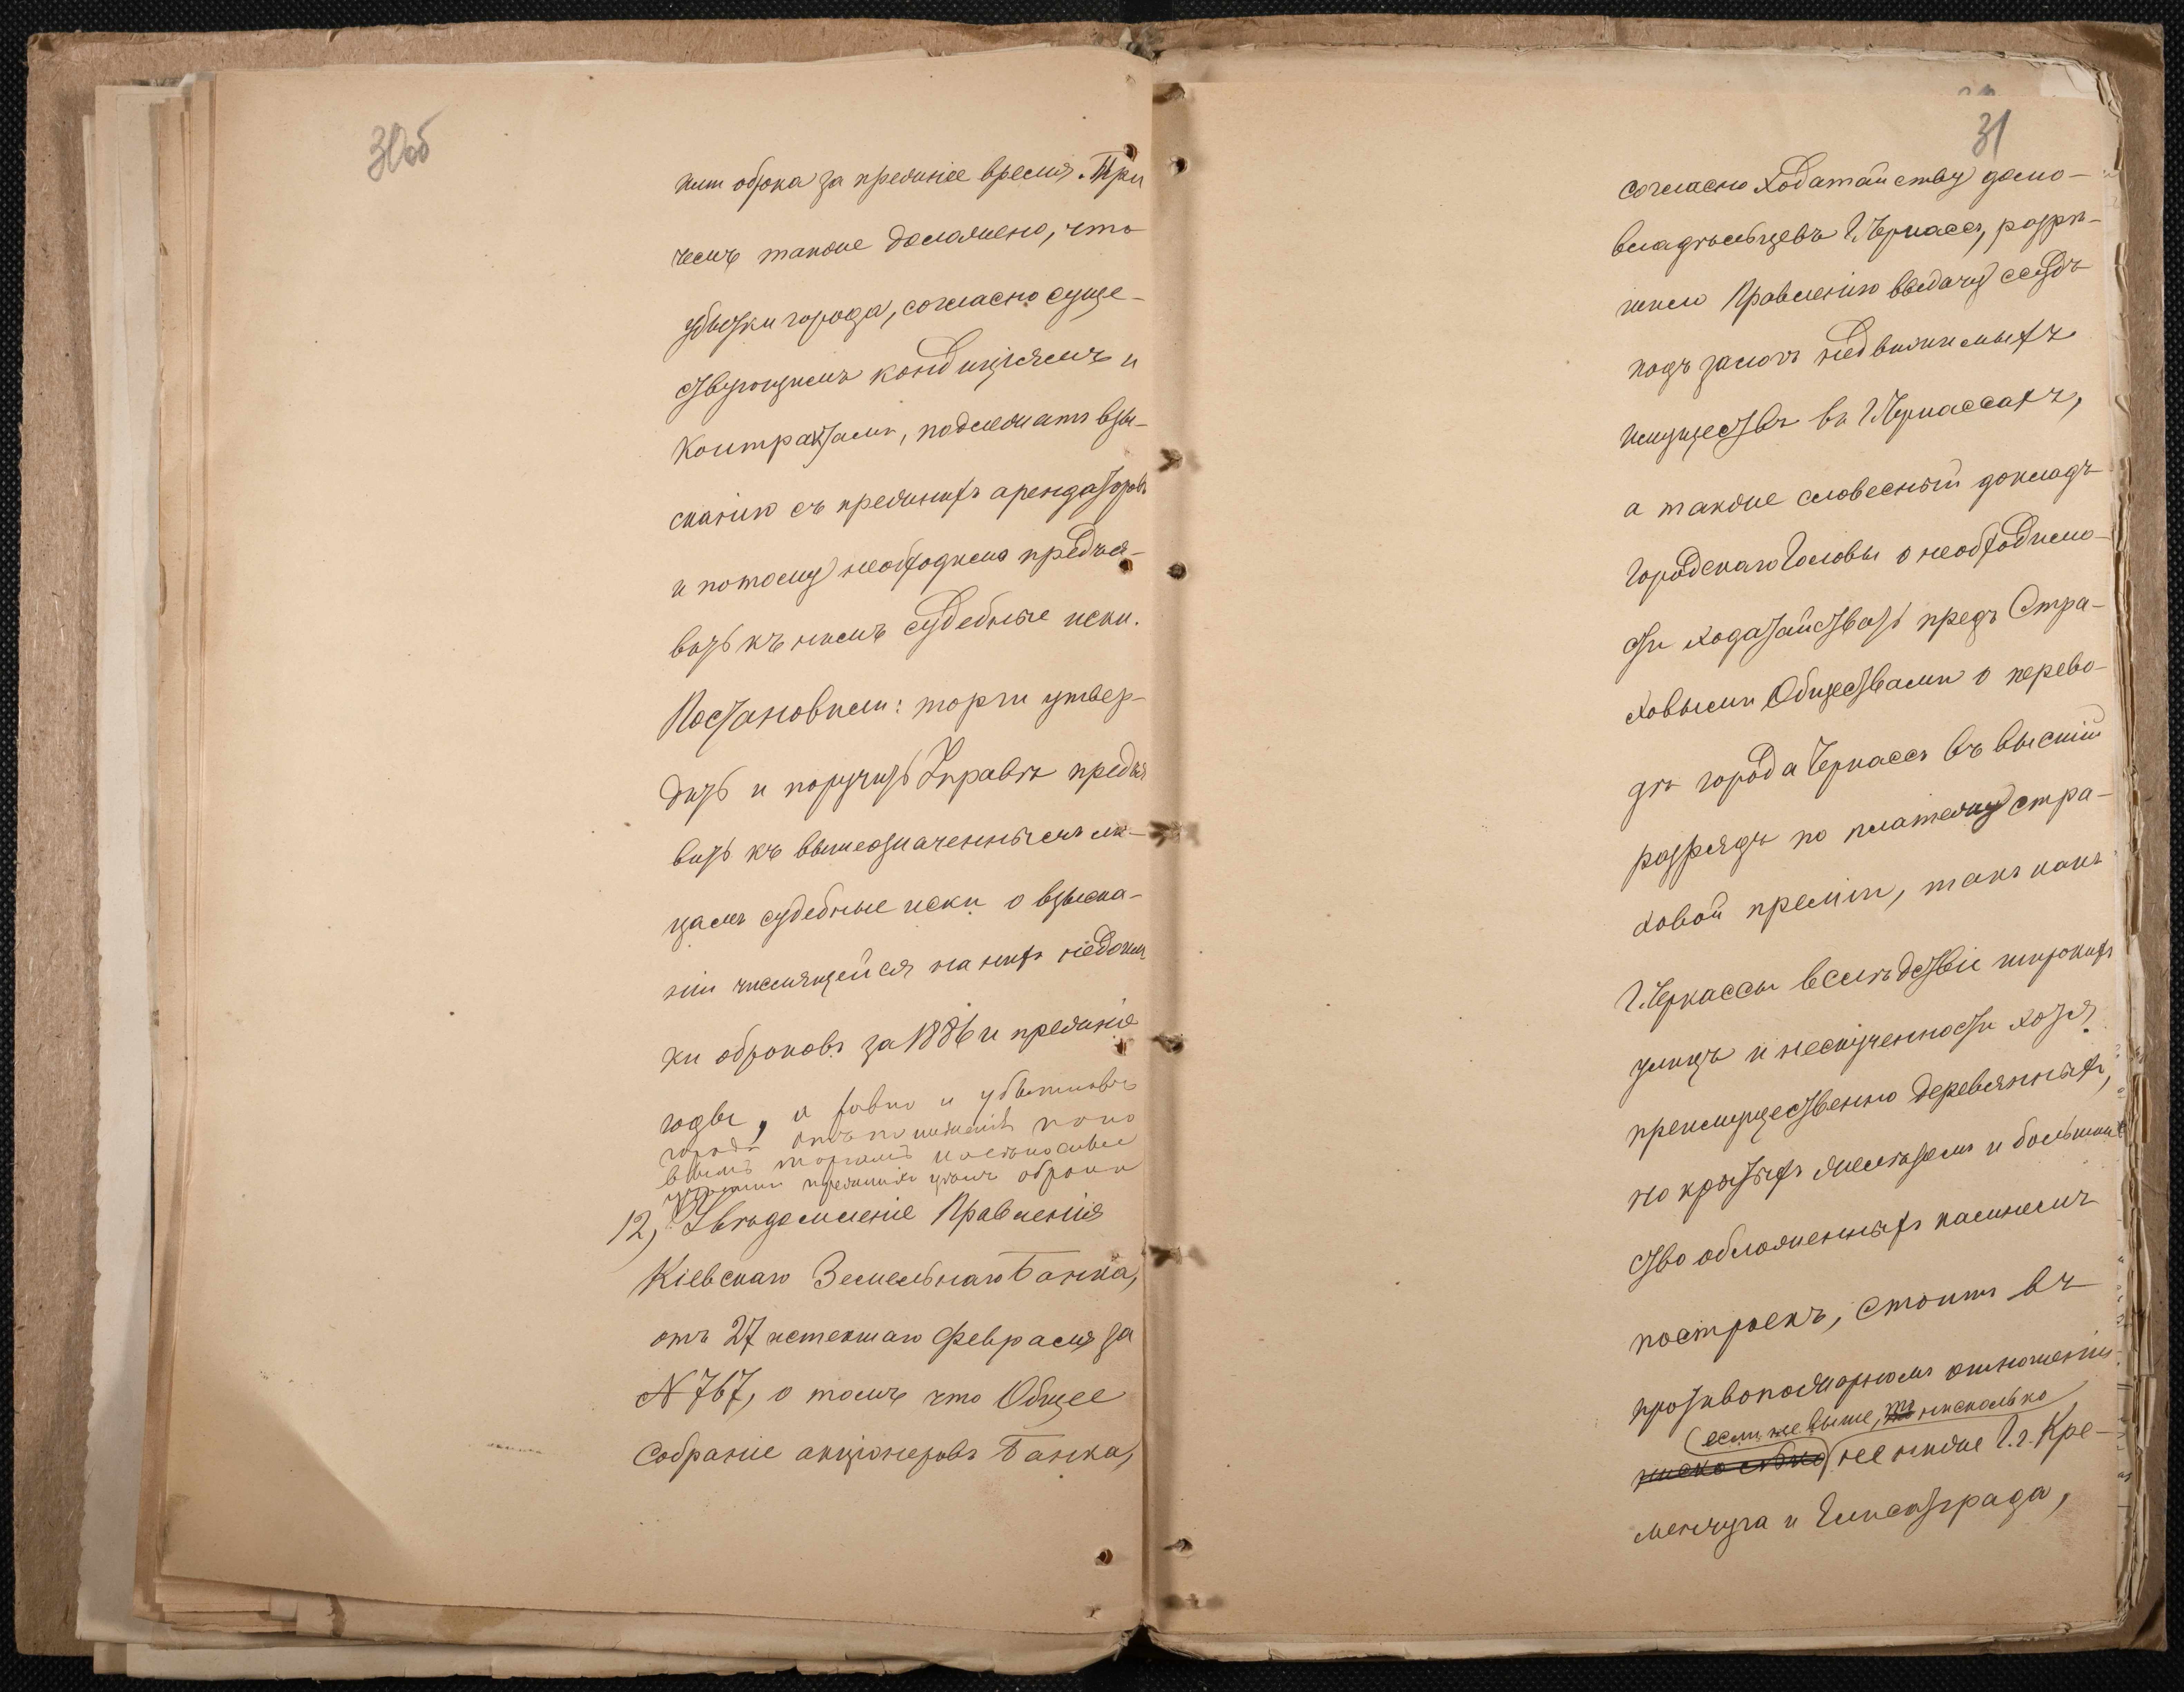 30об
ним оброка за прежнее время. При
чемъ также доложено, что
убытки города, согласно суще-
ствующимъ кондиціямъ и
контрактамъ, подлежатъ взы-
сканію съ прежнихъ арендаторовъ
и потому необходимо предъя-
вить къ нимъ судебные иски.
Постановили: торги утвер-
дить и поручить Управѣ предъя
вить къ вышеозначеннымъ ли-
цамъ судебные иски о взыска-
ніи числящейся на нихъ недоим
ки оброковъ за 1886 и прежніе
годы, а равно и убытковъ
города отъ пониженія по но
вымъ торгамъ
прежнихъ цѣнъ оброка
12, Увѣдомленіе Правленія
Кіевскаго Земельнаго Банка,
отъ 27 истекшаго Февраля за
N 767, о томъ что Общее
Собраніе акціонеровъ Банка,
31
согласно ходатайству домо-
владѣльцевъ г. Черкассъ, разрѣ-
шило Правленію выдачу ссудъ
подъ залогъ недвижимыхъ
имуществъ въ г. Черкассахъ,
а также словесный докладъ
Городскаго Головы о необходимо-
сти ходатайствать предъ Стра-
ховыми Обществами о перево-
дѣ города Черкассъ въ высшій
разрядъ по платежу стра-
ховой преміи, такъ какъ
г. Черкассы вслѣдствіе широкихъ
улицъ и нескученности хотя
преимущественно деревянныхъ,
но крытыхъ желѣзомъ и большин
ство обложенныхъ камнемъ
построекъ, стоитъ въ
противопожарномъ отношеніи
(если не выше, то нисколько
нисколько) не ниже г.г. Кре-
менчуга и Елисаветграда,